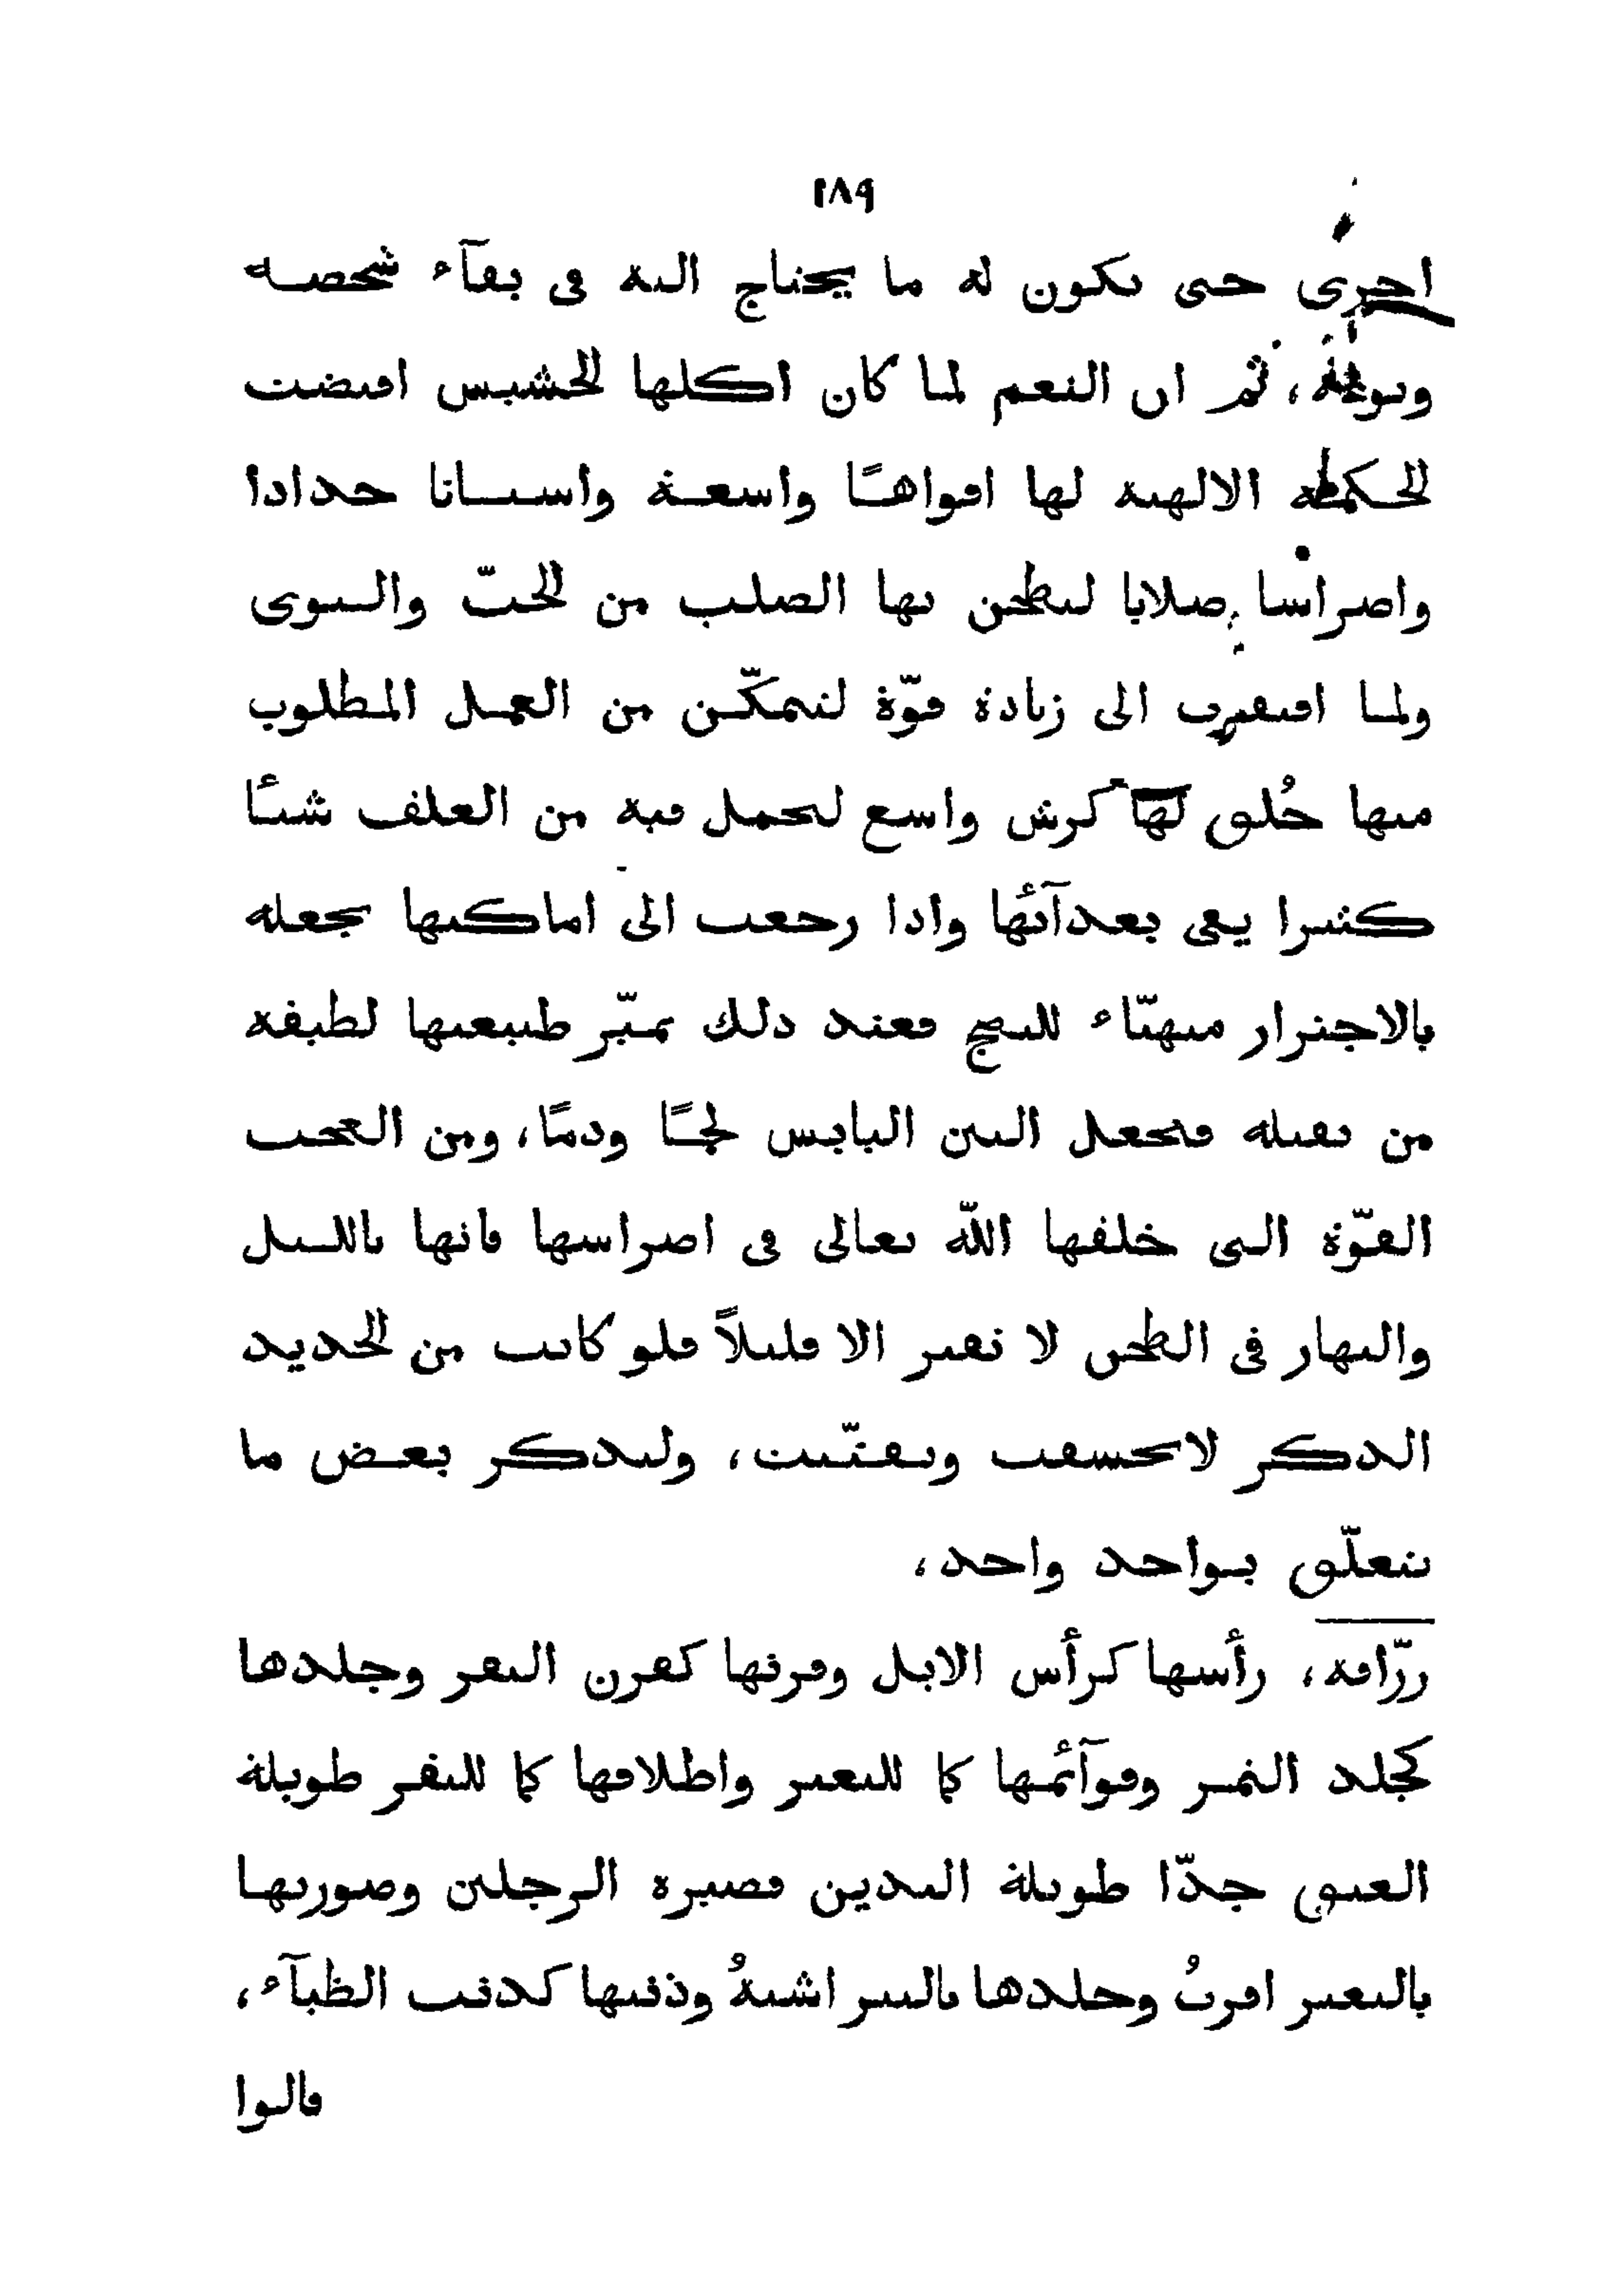 ١٨٩
اخرى حتى تكون له ما يحتاج اليه فى بقآء شخصه
ونوعه، ثم ان النعم لما كان اكلها للحشيش اقتضت
للحكمة الالهية لها افواها واسعة واسنانا حدادا
واضراسا صلابا لتطحن بها الصلب من للحبّ والنوى
ولما افتقرت الى زيادة قوّة لتتمكّن من العمل المطلوب
منها خُلق لها كرش واسع لتحمل فيه من العلف شئا
كثيرا يفى بغدآئها واذا رجعت الى اماكنها تجعله
بالاجترار مهيّاء للنضج فعند ذلك تميّز طبيعتها لطيفه
من ثقيله فتجعل التبن اليابس لحمًا ودمًا، ومن العجب
القوّة التى خلقها الله تعالى فى اضراسها فانها بالليل
والنهار فى الطحن لا تفتر الا قليلاً فلو كانت من للحديد
الذكر لانحسفت وتفتّتت، ولنذكر بعض ما
يتعلّق بواحد واحد،
زرّافة، رأسها كرأس الابل وقرنها كقرن البقر وجلدها
كجلد النمر وقوآئمها كما للبعير واظلافها كما للبقر طويلة
العنق جدّا طويلة اليدين قصيرة الرجلين وصورتها
بالبعير اقربُ وجلدها بالببر اشبهُ وذنبها كذنب الظبآء،
قالوا